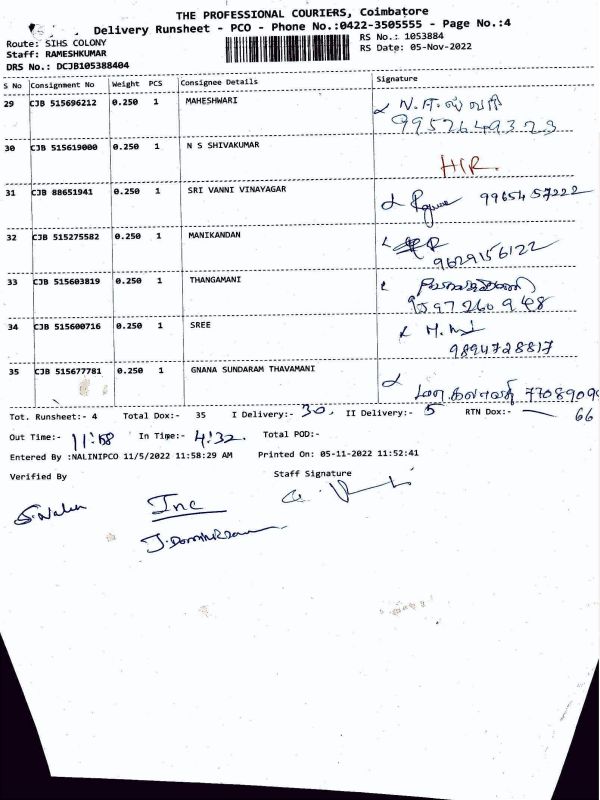 THE PROFESSIONAL COURIERS, Coimbatore
Delivery Runsheet - PCO - Phone No.:0422-3505555 - Page No.:4
Route: SIHS COLONY
RS No.: 1053884
Staff: RAMESHKUMAR
RS Date: 05-Nov-2022
DRS No.: DCJB105388404
S No Consignment No Weight PCS Consignee Details Signature
29 CJB 515696212 0.250 1 MAHESHWARI
9957649323
30 CJB 515619000 0.250 1 N S SHIVAKUMAR
31 CJB 88651941 0.250 1 SRI VANNI VINAYAGAR 9965457222
32 CJB 515275582 0.250 1 MANIKANDAN
9629156122
33 CJB 515603819 0.250 1 THANGAMANI
9597260948
34 CJB 515600716 0.250 1 SREE
9894728817
35 CJB 515677781 0.250 1 GNANA SUNDARAM THAVAMANI
77089099
66
Tot. Runsheet:- 4 Total Dox:- 35 I Delivery:- 30. II Delivery:- 5 RTN Dox:- —
Out Time:- 11:58 In Time:- 4:32. Total POD:-
Entered By :NALINIPCO 11/5/2022 11:58:29 AM Printed On: 05-11-2022 11:52:41
Verified By Staff Signature
S.Nalini
Inc